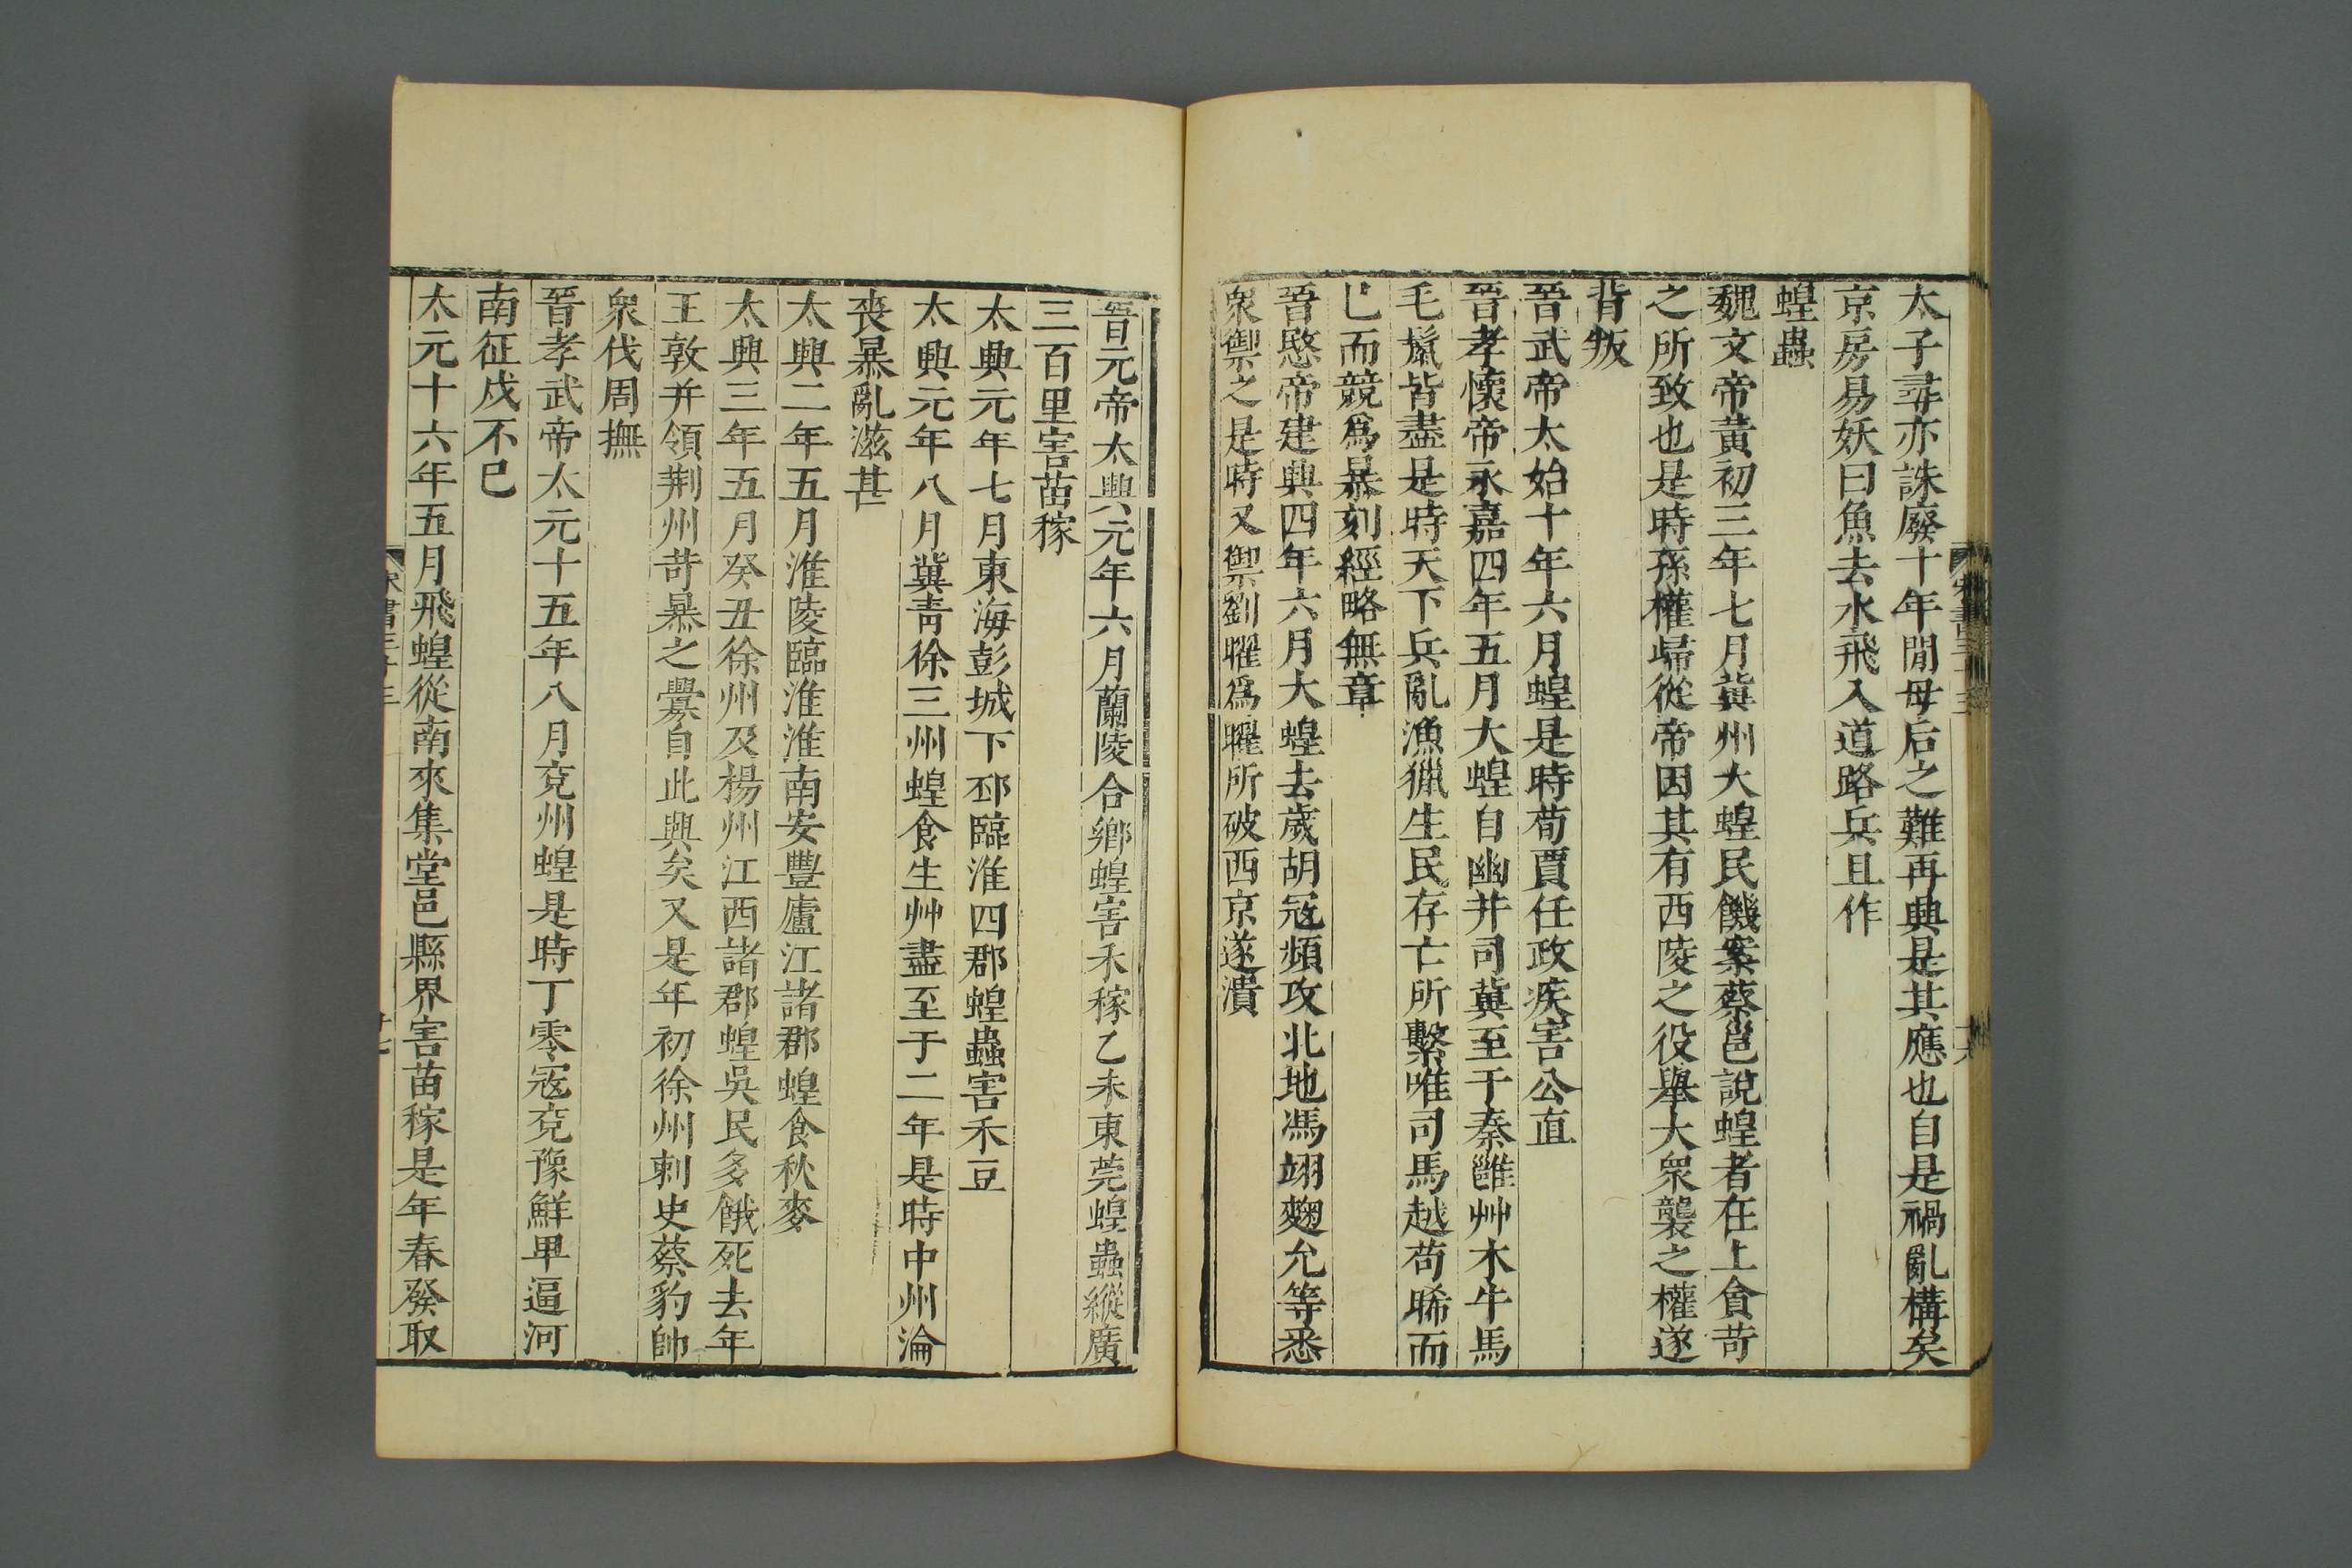 太子尋亦誅廢十年閒母后之難再興是其應也自是禍亂構矣
京房易妖曰魚去水飛入道路兵且作
蝗蟲
魏文帝黃初三年七月冀州大蝗民饑案蔡邕說蝗者在上貪苛
之所致也是時孫權歸從帝因其有西陵之役舉大衆襲之權遂
背叛
晉武帝太始十年六月蝗是時荀賈任政疾害公直
晉孝懷帝永嘉四年五月大蝗自幽井司冀至于秦雝艸木牛馬
毛鬣皆盡是時天下兵亂漁獵生民存亡所繫唯司馬越苟晞而
已而競爲暴刻經略無章
晉愍帝建興四年六月大蝗去歲胡冦頻攻北地馮翊麹允等悉
衆禦之是時又禦劉曜爲曜所破西京遂潰
晉元帝太興元年六月蘭陵合鄉蝗害禾稼乙未東莞蝗蟲縱廣
三百里害苗稼
太興元年七月東海彭城下邳臨淮四郡蝗蟲害禾豆
太興元年八月冀青徐三州蝗食生艸盡至于二年是時中州淪
喪暴亂滋甚
太興二年五月淮陵臨淮淮南安豐廬江諸郡蝗食秋麥
太興三年五月癸丑徐州及楊州江西諸郡蝗吳民多餓死去年
王敦并領荆州苛暴之釁自此興矣又是年初徐州刺史蔡豹帥
衆伐周撫
晉孝武帝太元十五年八月兖州蝗是時丁零冦兖豫鮮卑逼河
南征戍不已
太元十六年五月飛蝗從南來集堂邑縣界害苗稼是年春發取